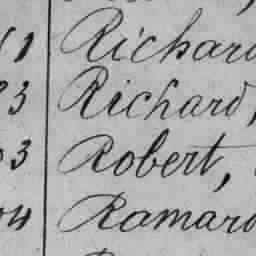 1 Richard
3 Richard,
3 Robert,
4 Ramard